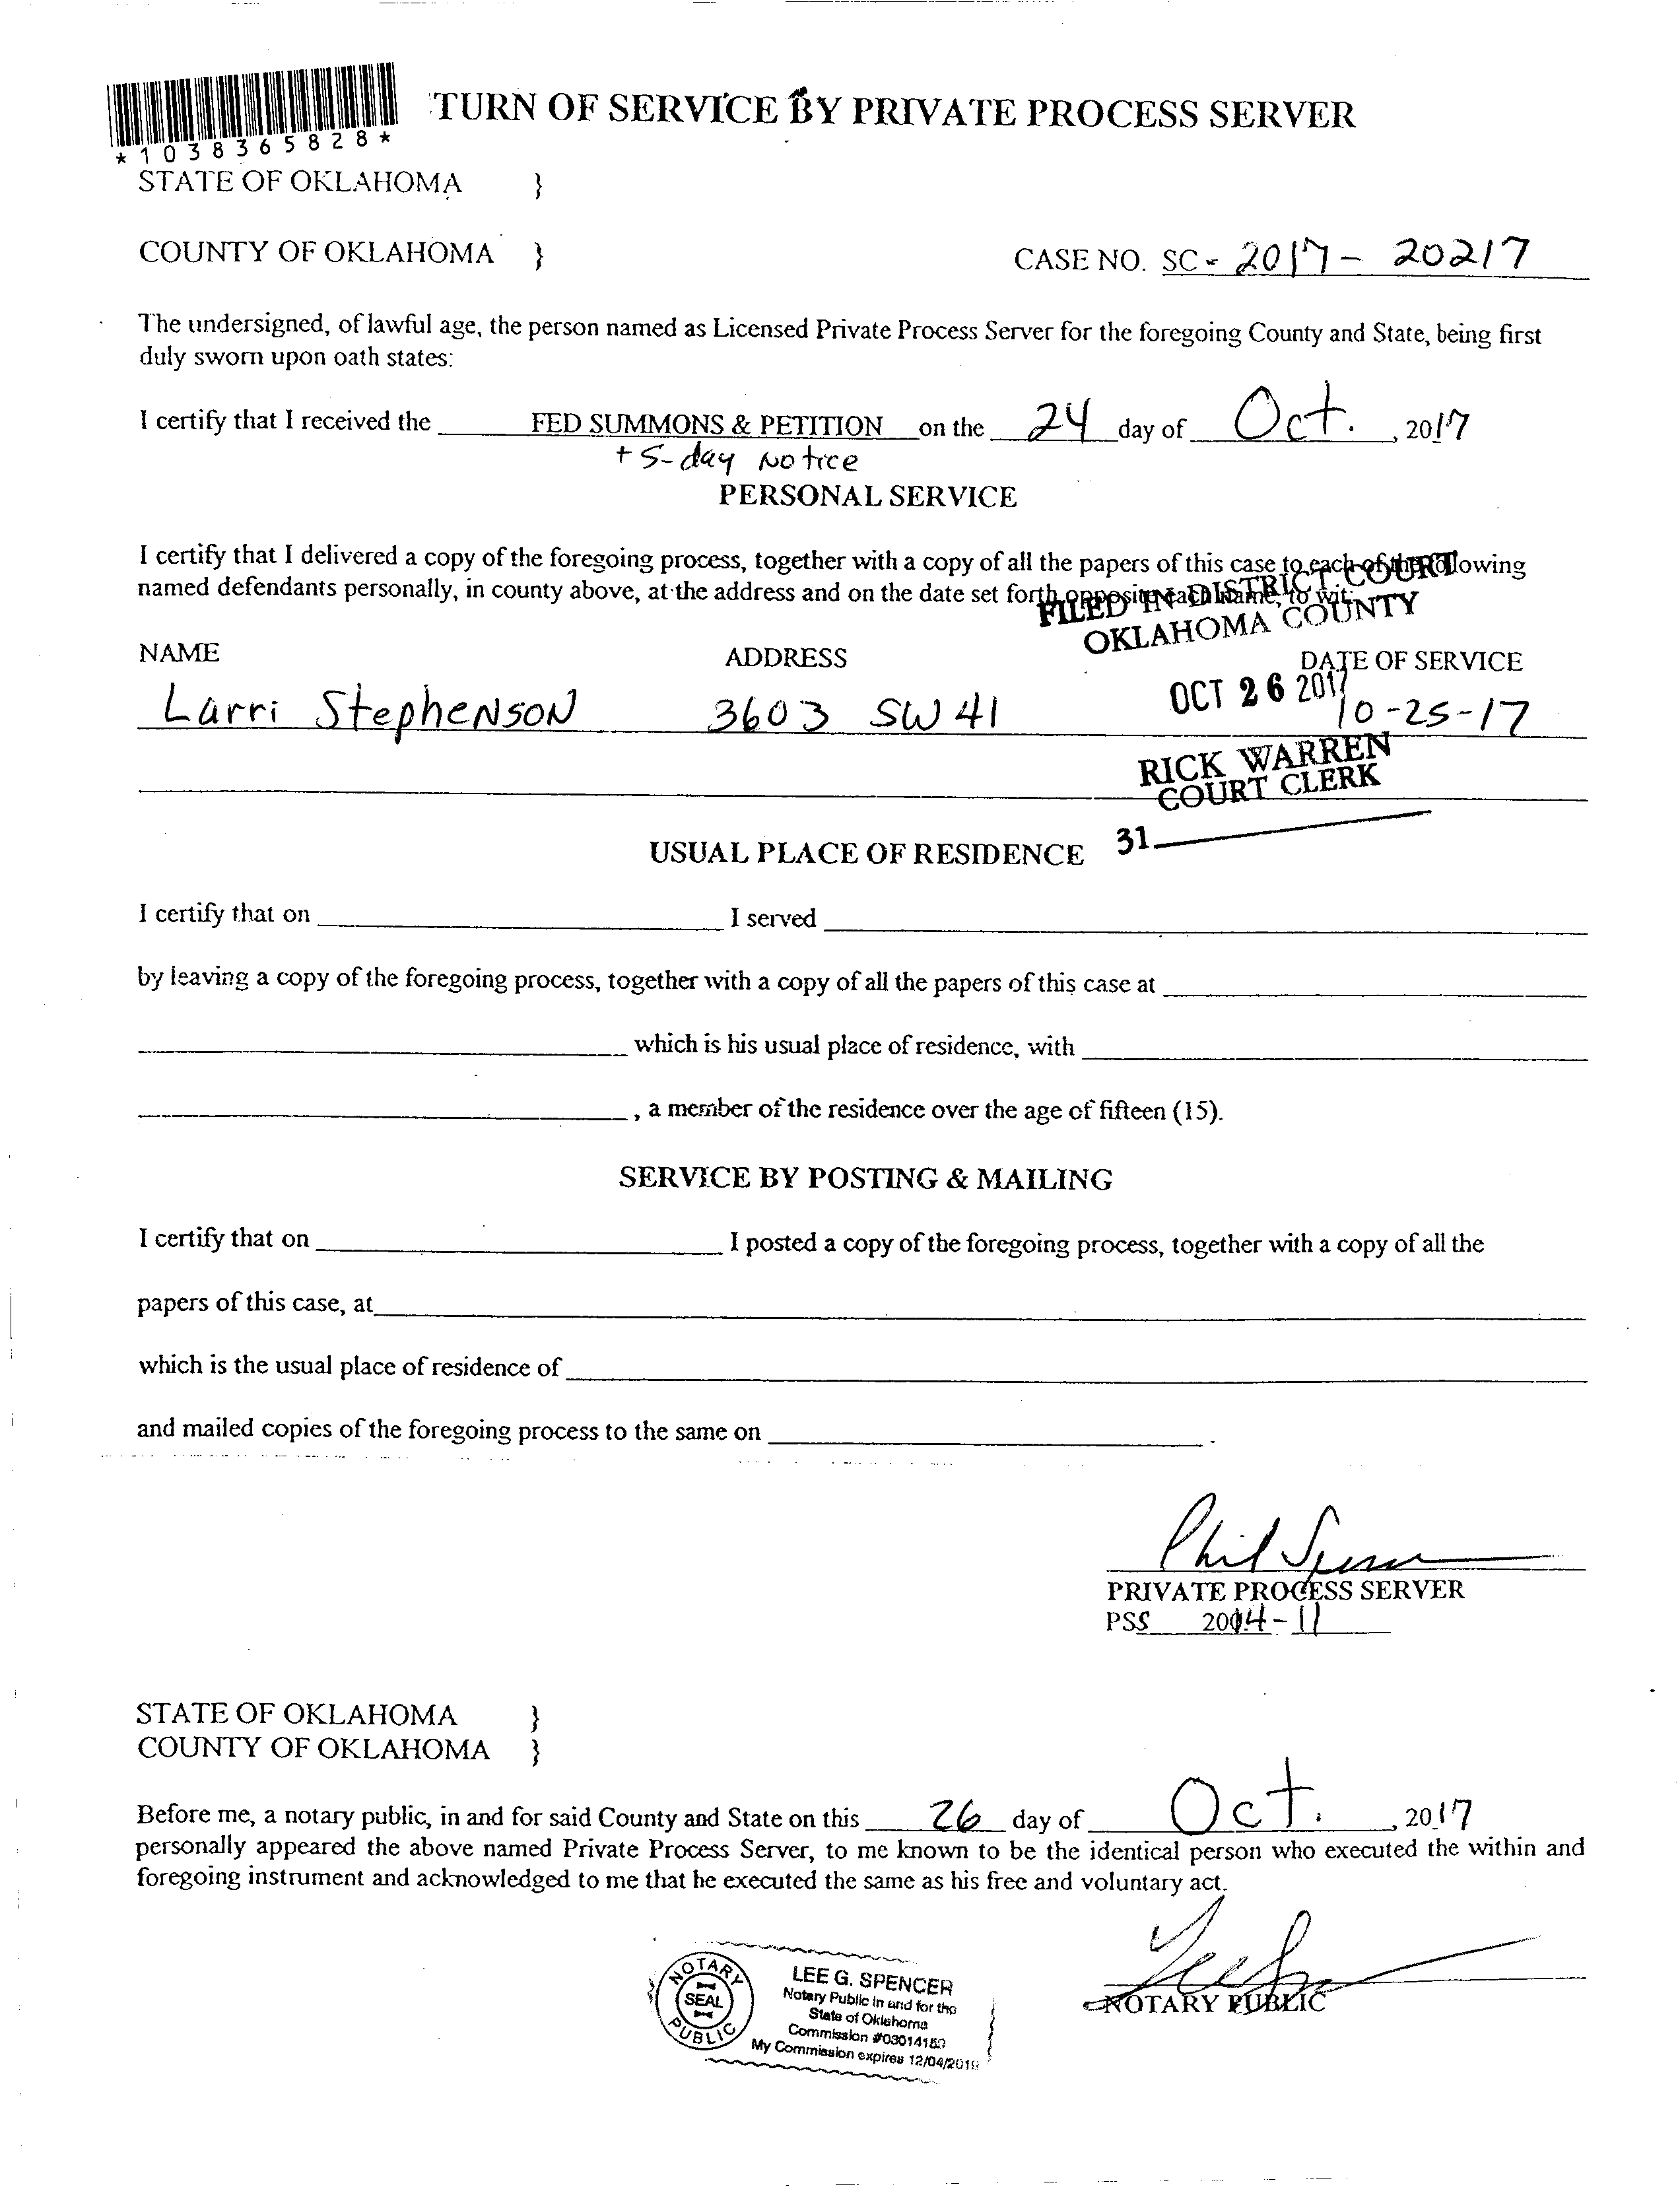 TURN OF SERVICE BY PRIVATE PROCESS SERVER
*1038365828*
STATE OF OKLAHOMA }
COUNTY OF OKLAHOMA } CASE NO. SC - 2017 - 20217
The undersigned, of lawful age, the person named as Licensed Private Process Server for the foregoing County and State, being first
duly sworn upon oath states:
I certify that I received the FED SUMMONS & PETITION on the 24 day of Oct. , 2017
+ 5-day Notice
PERSONAL SERVICE
I certify that I delivered a copy of the foregoing process, together with a copy of all the papers of this case to each of the following
named defendants personally, in county above, at the address and on the date set forth opposite each name, to wit:
FILED IN DISTRICT COURT
OKLAHOMA COUNTY
NAME ADDRESS DATE OF SERVICE
OCT 26 2017
Larri Stephenson 3603 SW 41 10-25-17
RICK WARREN
COURT CLERK
31
USUAL PLACE OF RESIDENCE
I certify that on I served
by leaving a copy of the foregoing process, together with a copy of all the papers of this case at
which is his usual place of residence, with
, a member of the residence over the age of fifteen (15).
SERVICE BY POSTING & MAILING
I certify that on I posted a copy of the foregoing process, together with a copy of all the
papers of this case, at
which is the usual place of residence of
and mailed copies of the foregoing process to the same on .
Phil
PRIVATE PROCESS SERVER
PSS 2014-11
STATE OF OKLAHOMA }
COUNTY OF OKLAHOMA }
Before me, a notary public, in and for said County and State on this 26 day of Oct. , 2017
personally appeared the above named Private Process Server, to me known to be the identical person who executed the within and
foregoing instrument and acknowledged to me that he executed the same as his free and voluntary act.
NOTARY PUBLIC
NOTARY PUBLIC SEAL
LEE G. SPENCER
Notary Public in and for the
State of Oklahoma
Commission
My Commission expires